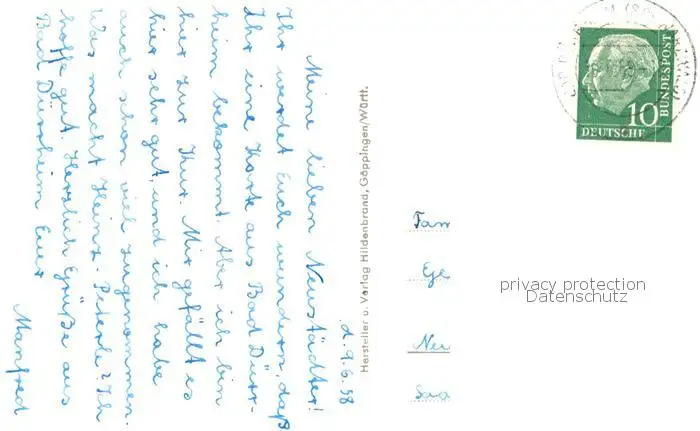 d. 9.6.58
Meine lieben Neustädter!
Ihr werdet Euch wundern, daß
Ihr eine Karte aus Bad Dürr-
heim bekommt. Aber ich bin
hier zur Kur. Mir gefällt es
hier sehr gut, und ich habe
auch schon viel zugenommen.
Was macht Heinz-Peterle? Ich
hoffe gut. Herzlich Grüße aus
Bad Dürrheim Euer
Manfred
Hersteller u. Verlag Hildenbrand, Göppingen/Württ.
10
DEUTSCHE
BUNDESPOST
Fam
Ege
Neu
privacy protection
Datenschutz